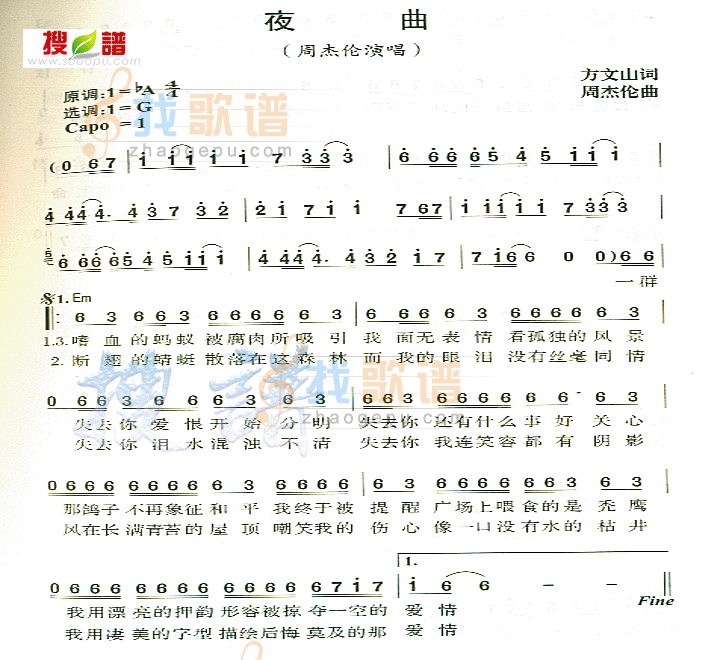 夜 曲
搜谱
www.sooopu.com
(周杰伦演唱)
方文山词
周杰伦曲
原调:1=♭A 4/4
选调:1=G
Capo =1
找歌谱
zhaogepu.com
(0 67 | i iiii i 7 333 | 6 6665 4 5 iii |
4 444. 4 3 7 32 | 2 i 7 i i 767 | i iiii i 7 333 |
6 6665 4 5 iii | 4 444. 4 3 2 i 7 | 7 i66 0 0) 66
一群
1. Em
6 3 6 6 6 3 6 6 6 6 6 3 | 6 3 6 6 6 3 6 6 6 6 6 3
1.3.嗜血的蚂蚁 被腐肉所吸引 我面无表情 看孤独的风景
2.断翅的蜻蜓 散落在这森林 而我的眼泪 没有丝毫同情
0 6 6 6 3 6 6 6 3 6 3 | 6 6 6 3 6 6 6 6 3 6 3
失去你爱恨开始分明 失去你还有什么事好关心
失去你泪水混浊不清 失去你我连笑容都有阴影
搜谱
找歌谱
zhaogepu.com
0666 6666 6666 6 3 | 6666 6666 6 3
那鸽子不再象征和平 我终于被提醒 广场上喂食的是秃鹰
风在长满青苔的屋顶 嘲笑我的伤心 像一口没有水的枯井
1.
0666 6666 6666 67i7 | i 6 6 - -
Fine
我用漂亮的押韵形容被掠夺一空的 爱情
我用凄美的字型描绘后悔莫及的那 爱情